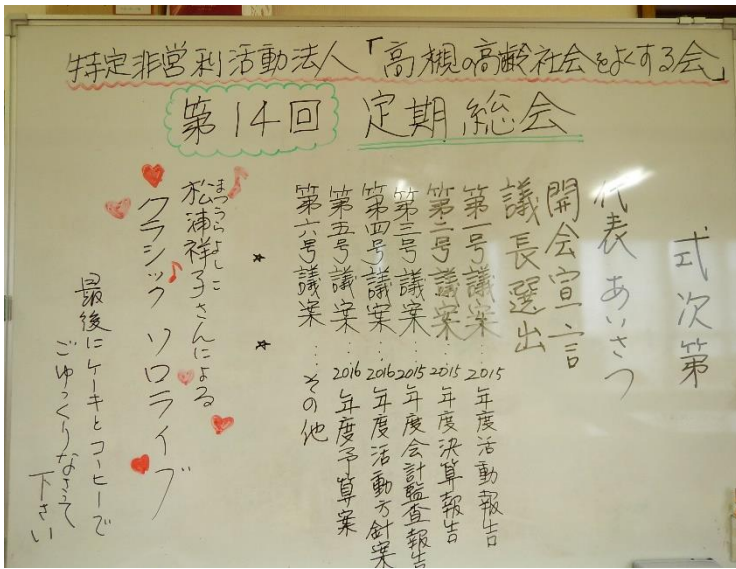 特定非営利活動法人「高槻の高齢社会をよくする会」
第14回 定期総会
式次第
代表あいさつ
開会宣言
議長選出
第一号議案…2015年度活動報告
第二号議案…2015年度決算報告
第三号議案…2015年度会計監査報告
第四号議案…2016年度活動方針案
第五号議案…2016年度予算案
第六号議案…その他
まつうらよしこ
松浦祥子さんによる
クラシック ソロライブ
最後にケーキとコーヒーで
ごゆっくりなさって
下さい